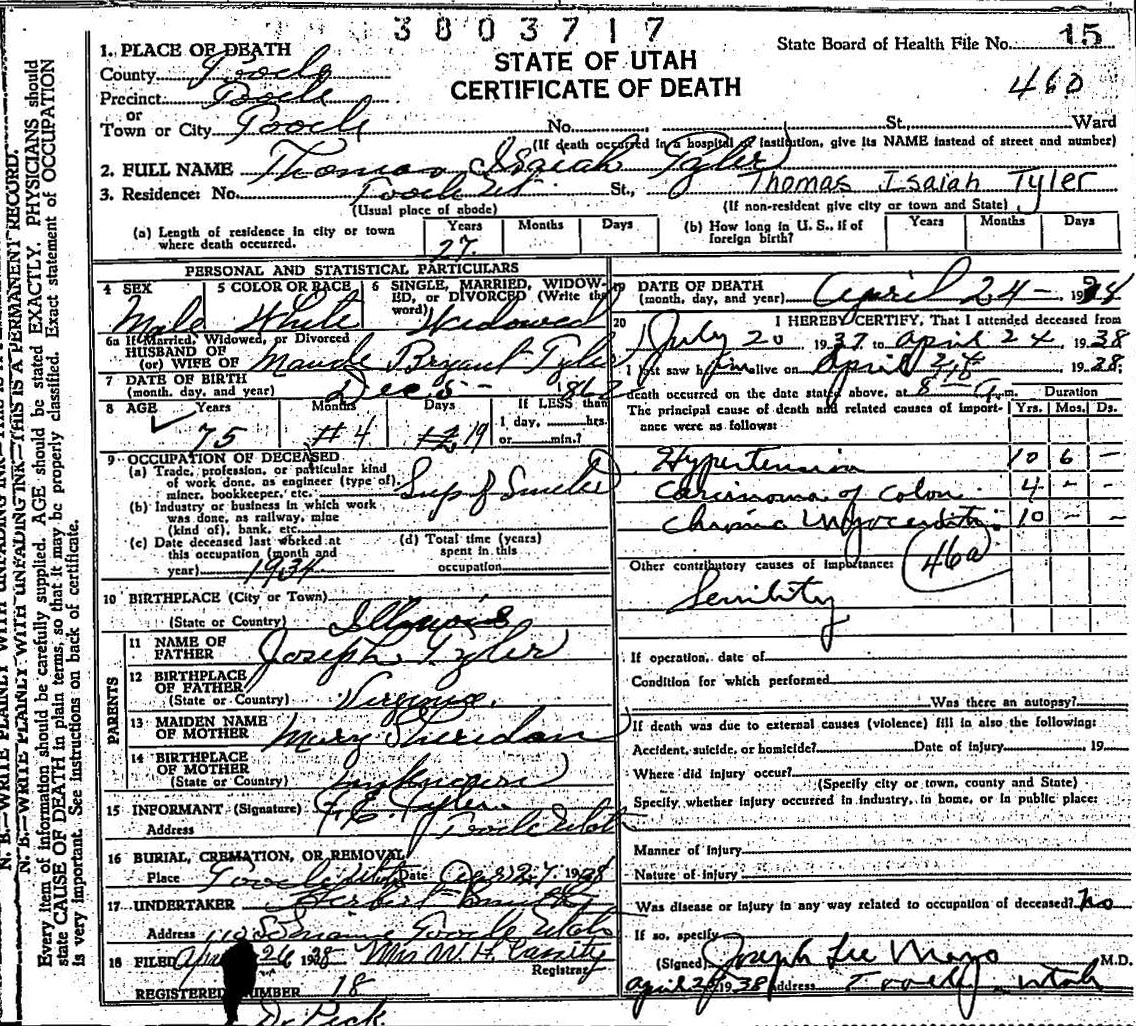 3803717
State Board of Health File No. 15
460
STATE OF UTAH
CERTIFICATE OF DEATH
1. PLACE OF DEATH
County Tooele
Precinct Tooele
or
Town or City Tooele No. St. Ward
(If death occurred in a hospital or institution, give its NAME instead of street and number)
2. FULL NAME Thomas Isaiah Tyler
Thomas Isaiah Tyler
3. Residence: No. Tooele Ut. St.,
(Usual place of abode) (If non-resident give city or town and State)
(a) Length of residence in city or town where death occurred. Years 27 Months Days
(b) How long in U. S., if of foreign birth? Years Months Days
PERSONAL AND STATISTICAL PARTICULARS
4 SEX Male
5 COLOR OR RACE White
6 SINGLE, MARRIED, WIDOWED, or DIVORCED (Write the word) Widowed
6a If Married, Widowed, or Divorced
HUSBAND OF
(or) WIFE OF Maude Bryant Tyler
7 DATE OF BIRTH
(month, day, and year) Dec. 5 - 1862
8 AGE Years 75 Months 4 Days 19 If LESS than 1 day, hrs. or min.?
9 OCCUPATION OF DECEASED
(a) Trade, profession, or particular kind of work done, as engineer (type of), miner, bookkeeper, etc. Sup of Smelter
(b) Industry or business in which work was done, as railway, mine (kind of), bank, etc.
(c) Date deceased last worked at this occupation (month and year) 1934
(d) Total time (years) spent in this occupation
10 BIRTHPLACE (City or Town)
(State or Country) Illinois
PARENTS
11 NAME OF FATHER Joseph Tyler
12 BIRTHPLACE OF FATHER
(State or Country) Virginia
13 MAIDEN NAME OF MOTHER Mary Sheridan
14 BIRTHPLACE OF MOTHER
(State or Country) unknown
15 INFORMANT (Signature) Tyler
Address Tooele Utah
16 BURIAL, CREMATION, OR REMOVAL
Place Tooele Utah Date Apr 27 1938
17 UNDERTAKER Herbert
Address Tooele Utah
18 FILED Apr 26 1938 Mrs W. H. Cassity
Registrar
REGISTERED NUMBER 18
Dr Peck
19 DATE OF DEATH
(month, day, and year) April 24 - 1938
20 I HEREBY CERTIFY, That I attended deceased from
July 20 1937 to April 24 1938
I last saw him alive on April 24 1938;
death occurred on the date stated above, at 8 a.m. Duration
The principal cause of death and related causes of importance were as follows: Yrs. Mos. Ds.
Hypertension 10 6 -
Carcinoma of Colon 4 - -
Chronic Myocarditis 10 - -
Other contributory causes of importance: 46a
Senility
If operation, date of
Condition for which performed
Was there an autopsy?
If death was due to external causes (violence) fill in also the following:
Accident, suicide, or homicide? Date of injury , 19
Where did injury occur?
(Specify city or town, county and State)
Specify whether injury occurred in industry, in home, or in public place:
Manner of injury
Nature of injury
Was disease or injury in any way related to occupation of deceased? no
If so, specify
(Signed) Joseph Lee Mayo M.D.
April 1938 Address Tooele, Utah
N. B.—WRITE PLAINLY WITH UNFADING INK—THIS IS A PERMANENT RECORD.
Every item of information should be carefully supplied. AGE should be stated EXACTLY. PHYSICIANS should
state CAUSE OF DEATH in plain terms, so that it may be properly classified. Exact statement of OCCUPATION
is very important. See instructions on back of certificate.